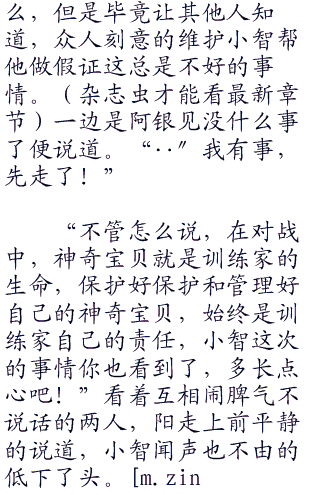 么，但是毕竟让其他人知
道，众人刻意的维护小智帮
他做假证这总是不好的事
情。（杂志虫才能看最新章
节）一边是阿银见没什么事
了便说道。“··〞我有事，
先走了！”
“不管怎么说，在对战
中，神奇宝贝就是训练家的
生命，保护好保护和管理好
自己的神奇宝贝，始终是训
练家自己的责任，小智这次
的事情你也看到了，多长点
心吧！”看着互相闹脾气不
说话的两人，阳走上前平静
的说道，小智闻声也不由的
低下了头。[m.zin